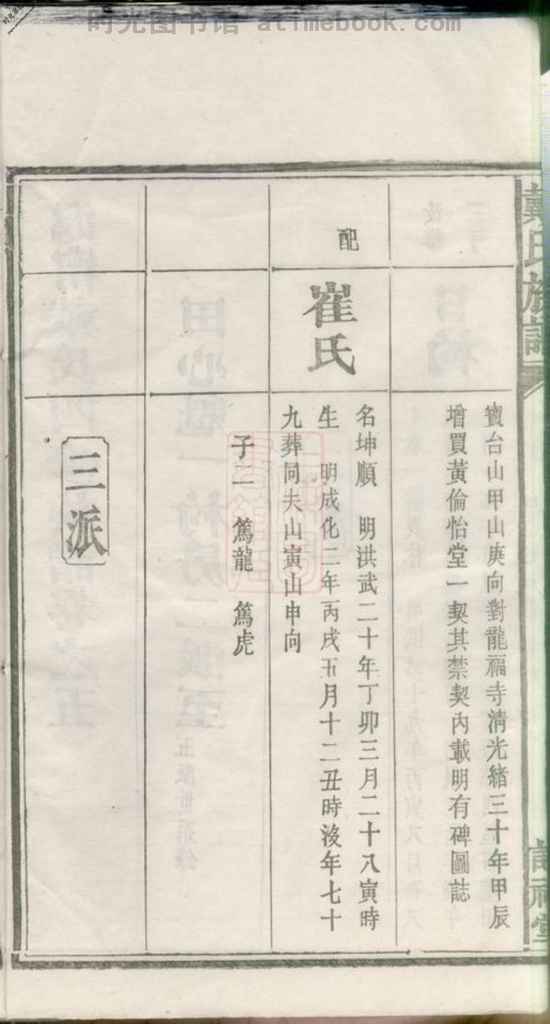 时光图书馆 atimebook.com
戴氏族譜
寶台山甲山庚向對龍福寺清光緒三十年甲辰
增買黃倫怡堂一契其禁契內載明有碑圖誌
配
崔氏
名坤順 明洪武二十年丁卯三月二十八寅時
生 明成化二年丙戌五月十二丑時沒年七十
九葬同夫山寅山申向
子二 篤龍 篤虎
三派